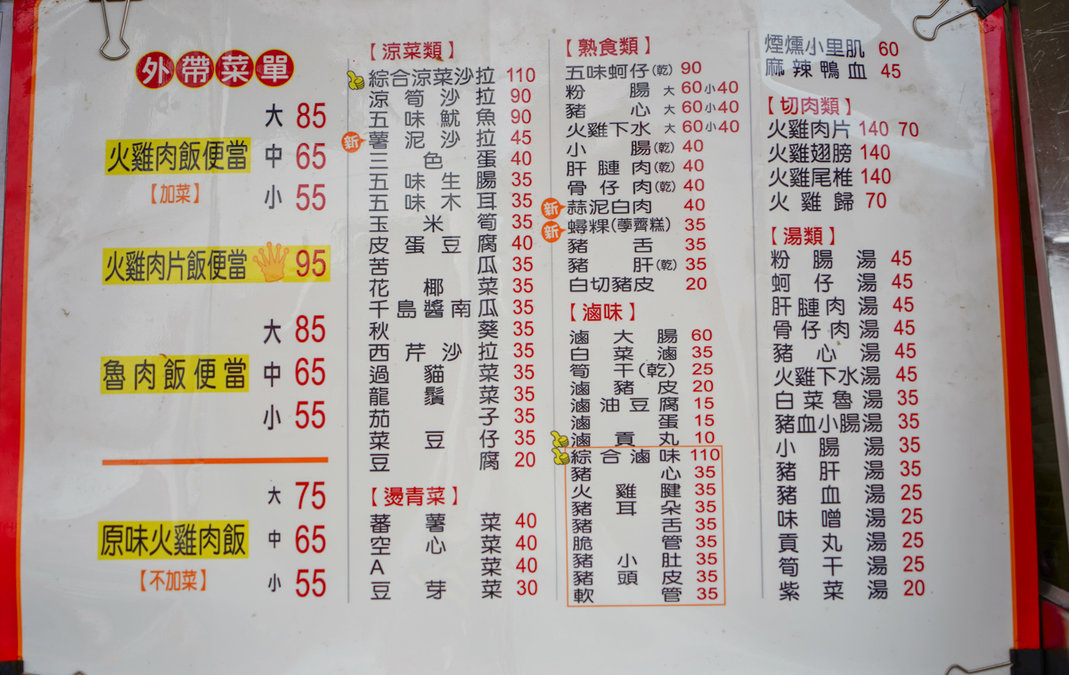 外帶菜單
大 85
火雞肉飯便當 中 65
【加菜】 小 55
火雞肉片飯便當 95
大 85
魯肉飯便當 中 65
小 55
大 75
原味火雞肉飯 中 65
【不加菜】 小 55
【涼菜類】
綜合涼菜沙拉 110
涼筍沙拉 90
五味魷魚 90
新 薯泥沙拉 45
三色蛋 40
五味生腸 35
五味木耳 35
玉米筍 35
皮蛋豆腐 40
苦瓜 35
花椰菜 35
千島醬南瓜 35
秋葵 35
西芹沙拉 35
過貓菜 35
龍鬚菜 35
茄子 35
菜豆仔 35
豆腐 20
【燙青菜】
蕃薯菜 40
空心菜 40
A菜 40
豆芽菜 30
【熟食類】
五味蚵仔(乾) 90
粉腸 大60小40
豬心 大60小40
火雞下水 大60小40
小腸(乾) 40
肝膁肉(乾) 40
骨仔肉(乾) 40
新 蒜泥白肉 40
新 蟳粿(荸薺糕) 35
豬舌 35
豬肝(乾) 35
白切豬皮 20
【滷味】
滷大腸 60
白菜滷 35
筍干(乾) 25
滷豬皮 20
滷油豆腐 15
滷蛋 15
滷貢丸 10
綜合滷味 110
豬心 35
火雞腱 35
豬耳朵 35
豬舌 35
脆管 35
豬小肚 35
豬頭皮 35
軟管 35
煙燻小里肌 60
麻辣鴨血 45
【切肉類】
火雞肉片 140 70
火雞翅膀 140
火雞尾椎 140
火雞歸 70
【湯類】
粉腸湯 45
蚵仔湯 45
肝膁肉湯 45
骨仔肉湯 45
豬心湯 45
火雞下水湯 45
白菜魯湯 35
豬血小腸湯 35
小腸湯 35
豬肝湯 35
豬血湯 25
味噌湯 25
貢丸湯 25
筍干湯 25
紫菜湯 20